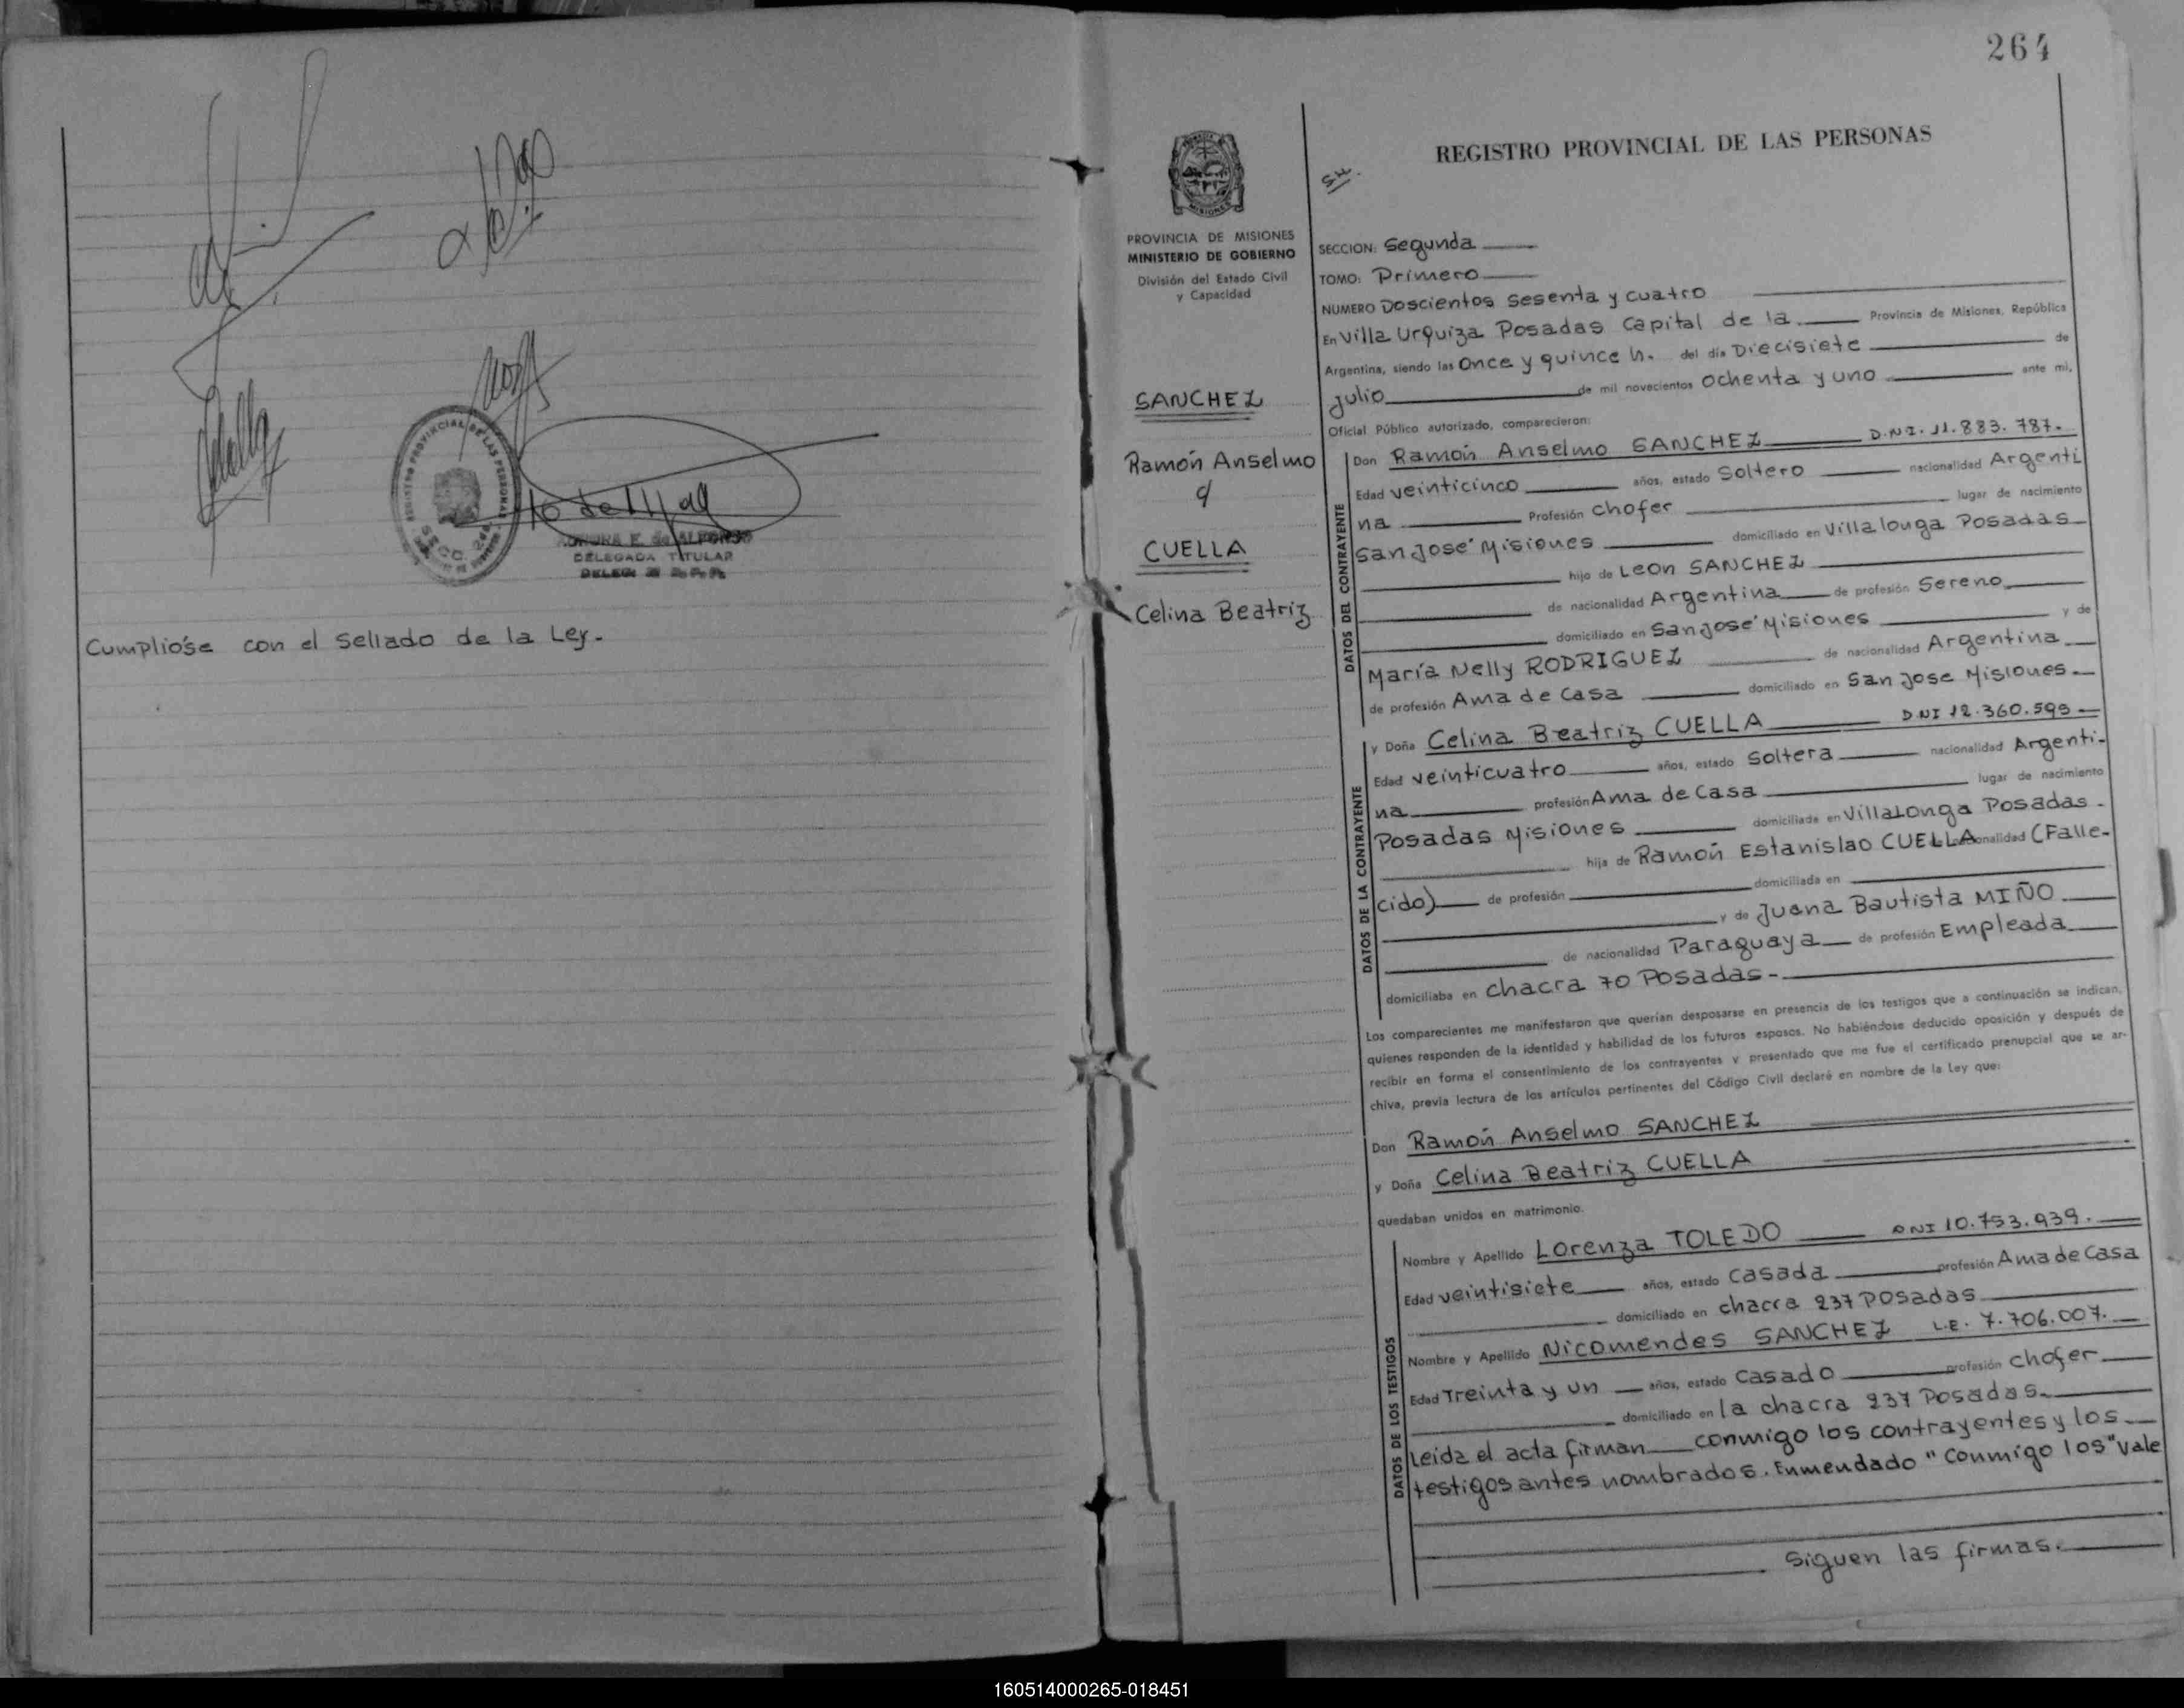 REGISTRO PROVINCIAL DE LAS PERSONAS
SECC. 2da.
DELEGADA TITULAR
Cumplióse con el sellado de la Ley.-
264
MISIONES
PROVINCIA DE MISIONES
MINISTERIO DE GOBIERNO
División del Estado Civil
y Capacidad
SANCHEZ
Ramón Anselmo
c/
CUELLA
Celina Beatriz
REGISTRO PROVINCIAL DE LAS PERSONAS
SECCION: Segunda
TOMO: Primero
NUMERO Doscientos Sesenta y cuatro
En Villa Urquiza Posadas Capital de la Provincia de Misiones, República
Argentina, siendo las Once y quince h. del día Diecisiete de
julio de mil novecientos Ochenta y uno ante mi,
Oficial Público autorizado, comparecieron:
DATOS DEL CONTRAYENTE
Don Ramón Anselmo SANCHEZ D.N.I. 11.883.787.-
Edad veinticinco años, estado Soltero nacionalidad Argenti
na Profesión Chofer lugar de nacimiento
San José Misiones domiciliado en Villalonga Posadas
hijo de Leon SANCHEZ
de nacionalidad Argentina de profesión Sereno
domiciliado en San José Misiones y de
María Nelly RODRIGUEZ de nacionalidad Argentina
de profesión Ama de Casa domiciliado en San Jose Misiones
DATOS DE LA CONTRAYENTE
y Doña Celina Beatriz CUELLA D.NI 12.360.595
Edad veinticuatro años, estado Soltera nacionalidad Argenti-
na profesión Ama de Casa lugar de nacimiento
Posadas Misiones domiciliada en Villalonga Posadas.
hija de Ramón Estanislao CUELLA nacionalidad (Falle-
cido) de profesión domiciliada en
y de Juana Bautista MIÑO
de nacionalidad Paraguaya de profesión Empleada
domiciliaba en Chacra 70 Posadas-
Los comparecientes me manifestaron que querían desposarse en presencia de los testigos que a continuación se indican,
quienes responden de la identidad y habilidad de los futuros esposos. No habiéndose deducido oposición y después de
recibir en forma el consentimiento de los contrayentes y presentado que me fue el certificado prenupcial que se ar-
chiva, previa lectura de los artículos pertinentes del Código Civil declaré en nombre de la Ley que:
Don Ramón Anselmo SANCHEZ
y Doña Celina Beatriz CUELLA
quedaban unidos en matrimonio.
DATOS DE LOS TESTIGOS
Nombre y Apellido Lorenza TOLEDO DNI 10.753.939.
Edad veintisiete años, estado casada profesión Ama de Casa
domiciliado en chacra 237 Posadas
Nombre y Apellido Nicomendes SANCHEZ L.E. 7.706.007.
Edad Treinta y un años, estado Casado profesión Chofer
domiciliado en la chacra 237 Posadas.
Leida el acta firman conmigo los contrayentes y los
testigos antes nombrados. Enmendado "Conmigo los" Vale
Siguen las firmas.
160514000265-018451